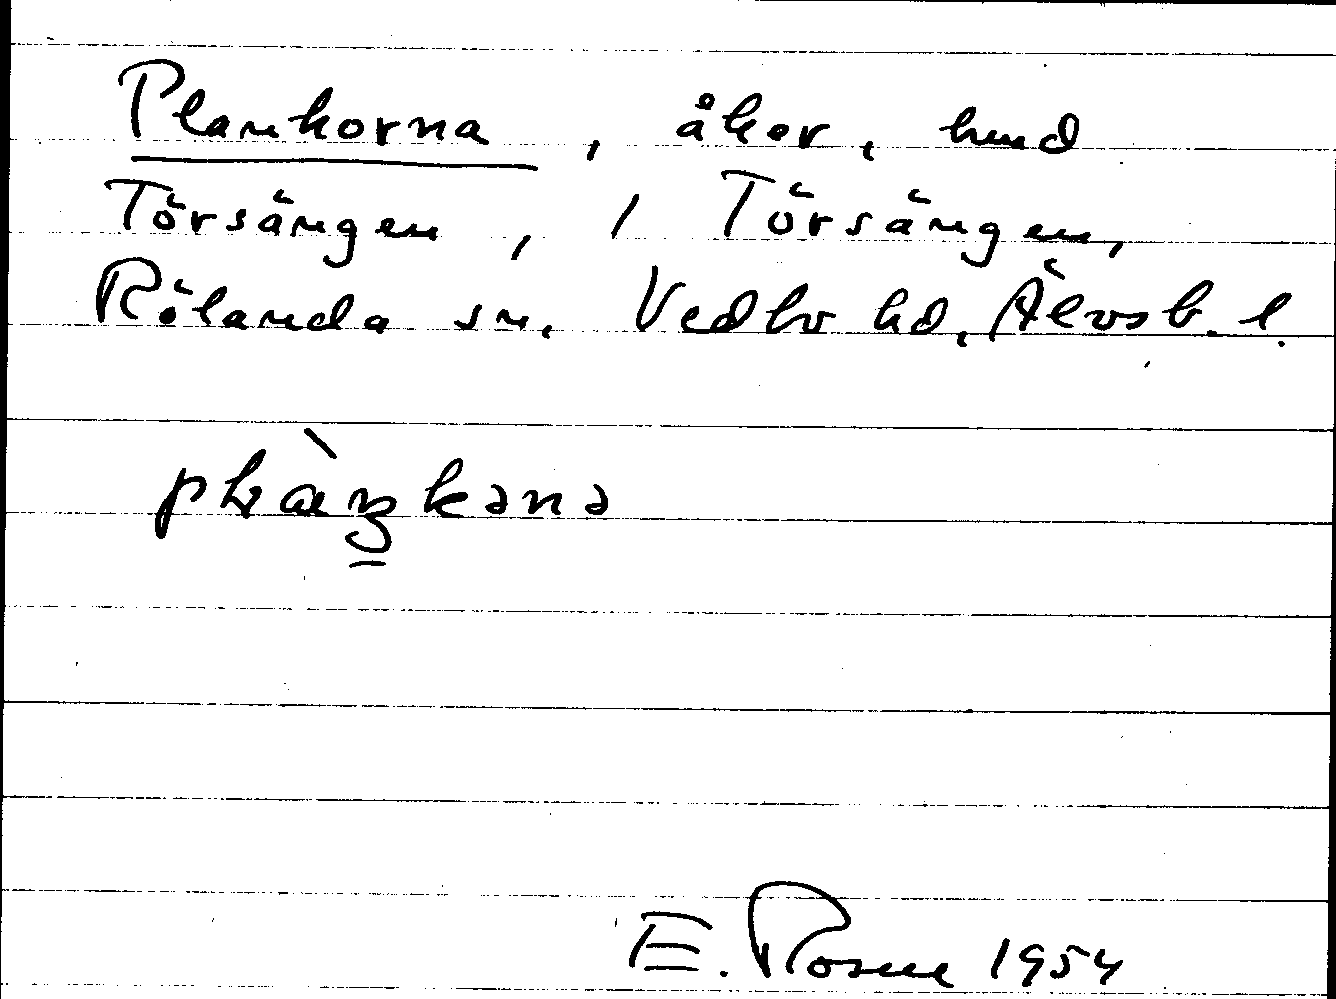 Plankorna, åker, hmd
Törsängen, 1 Törsängen,
Rölanda sn. Vedbo hd, Älvsb. l.
E. Rosne 1954